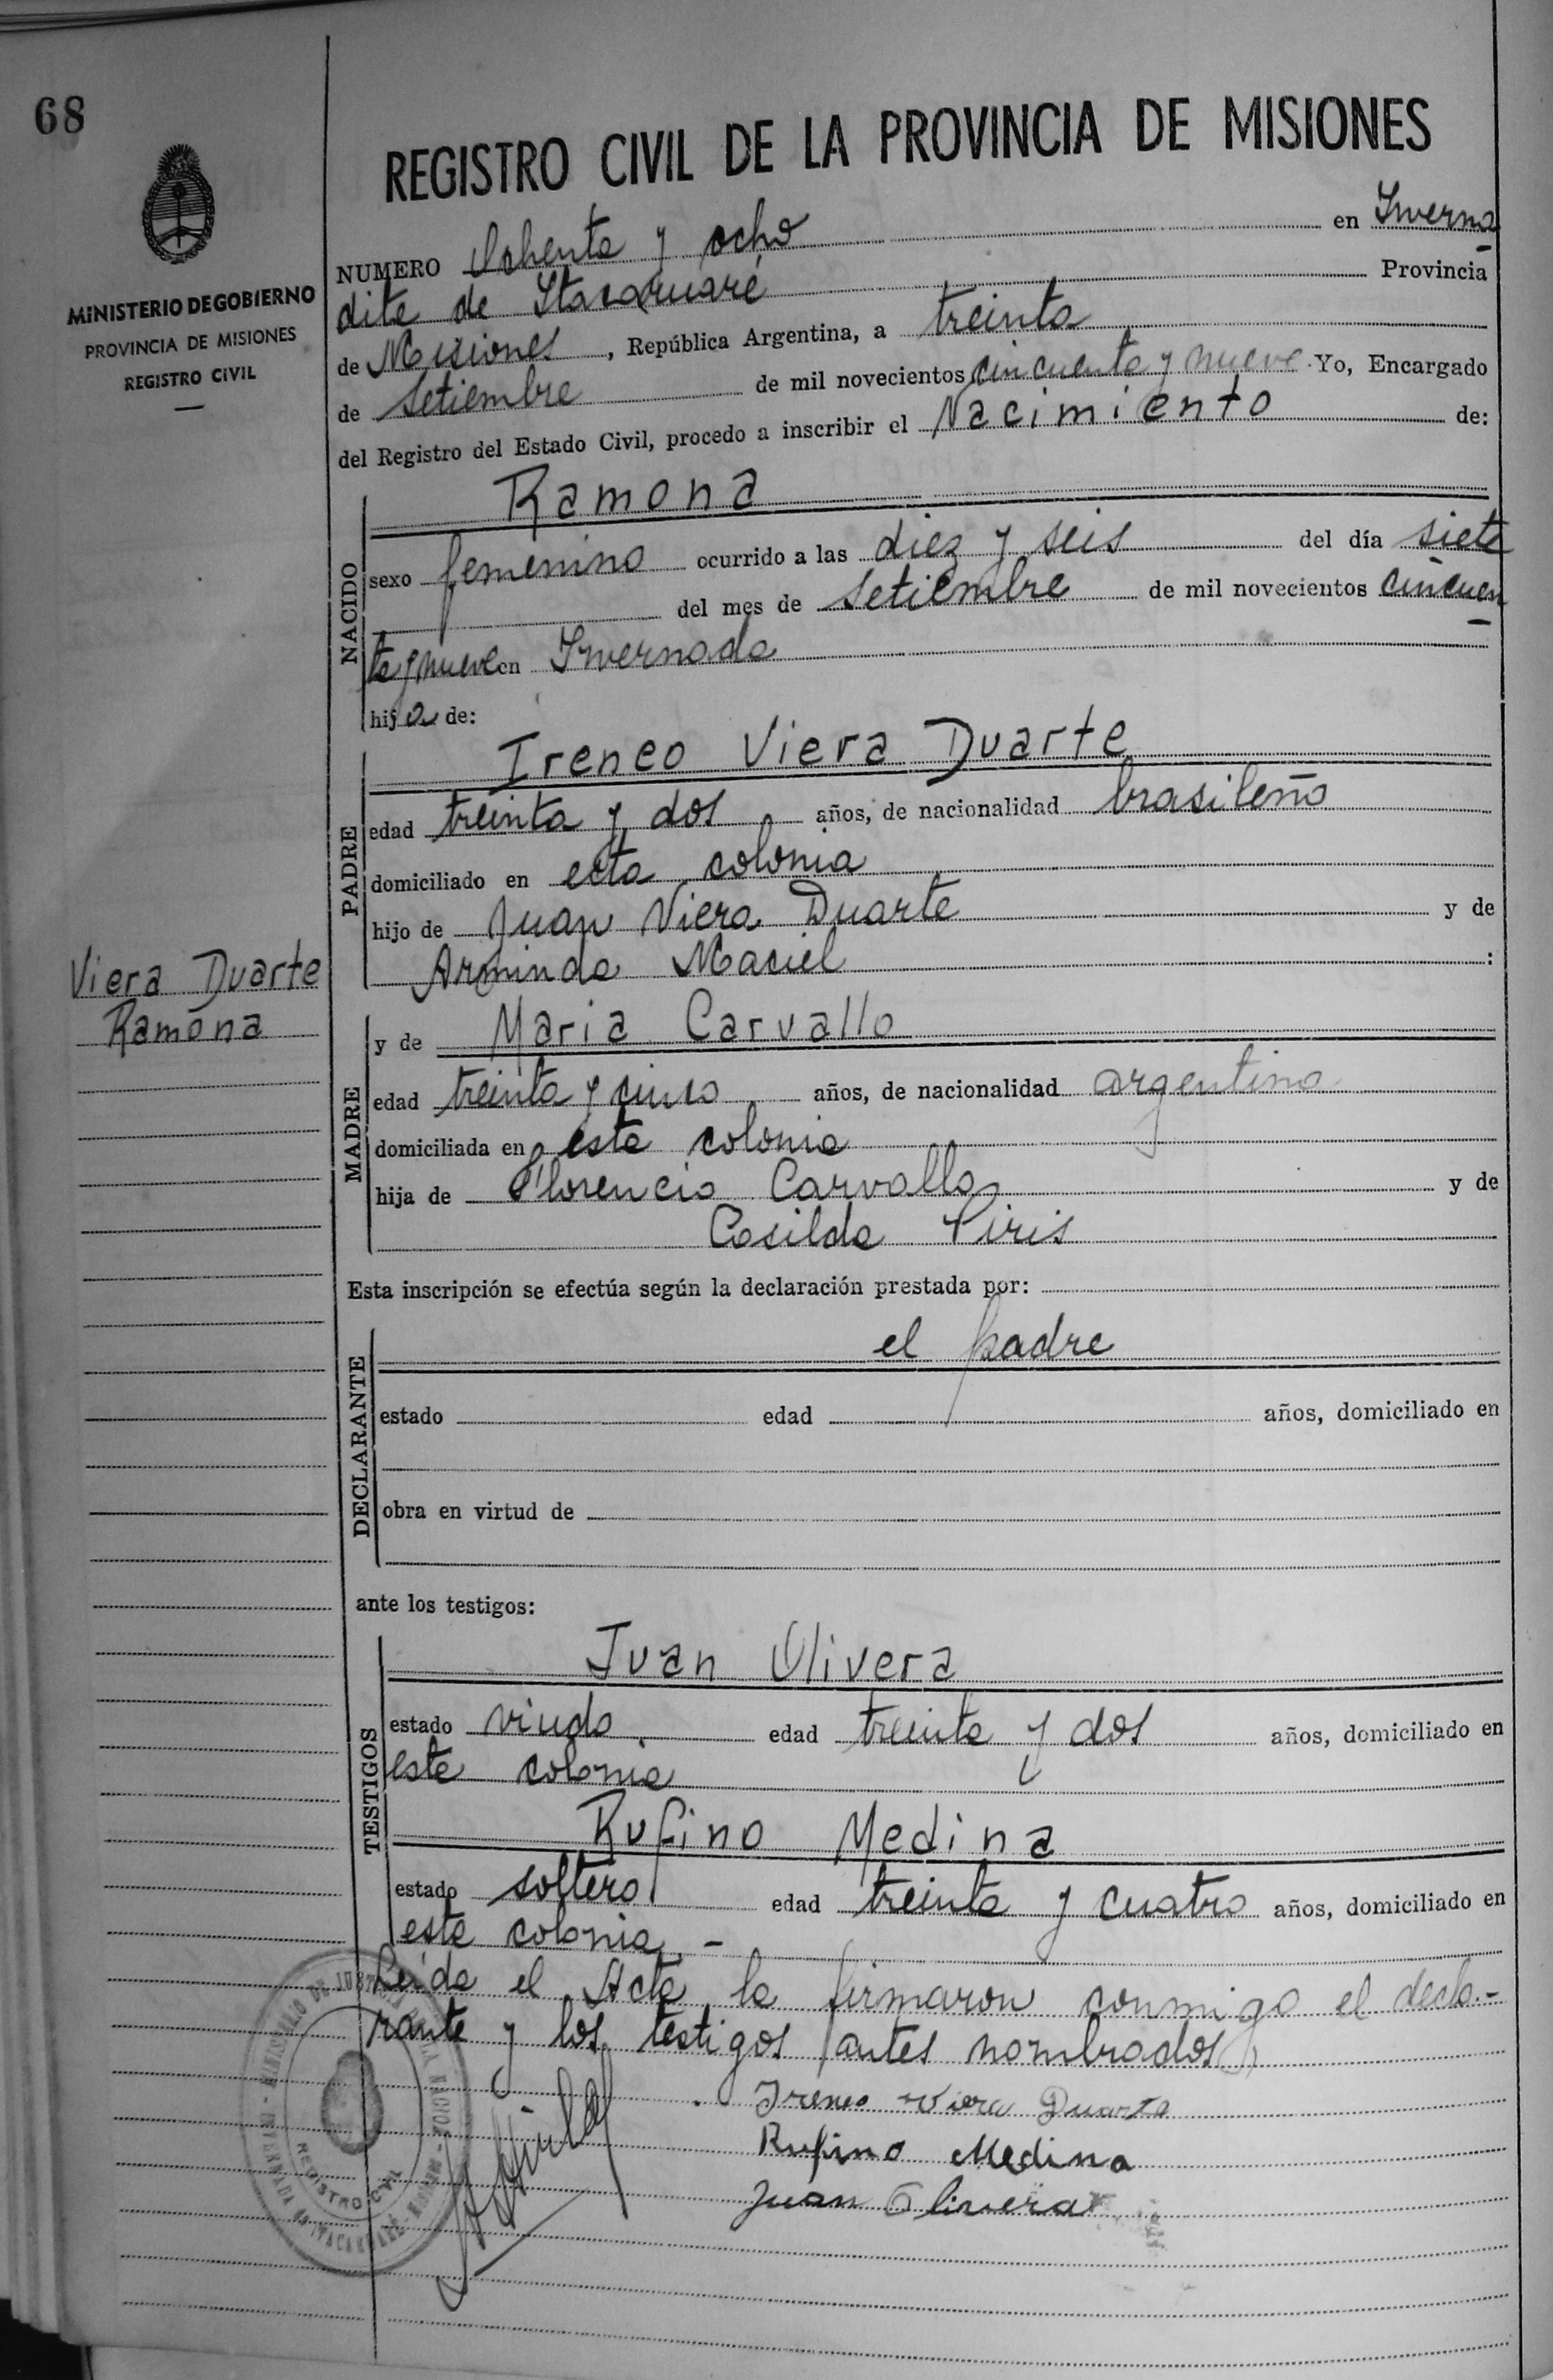 68
MINISTERIO DE GOBIERNO
PROVINCIA DE MISIONES
REGISTRO CIVIL
REGISTRO CIVIL DE LA PROVINCIA DE MISIONES
NUMERO Ochenta y ocho en Inverna
dita de Itacaruaré Provincia
de Misiones, República Argentina, a treinta
de setiembre de mil novecientos cincuenta y nueve Yo, Encargado
del Registro del Estado Civil, procedo a inscribir el Nacimiento de:
NACIDO
Ramona
sexo femenino ocurrido a las diez y seis del día siete
del mes de setiembre de mil novecientos cincuen
ta y nueve en Invernada
hija de:
PADRE
Ireneo Viera Duarte
edad treinta y dos años, de nacionalidad brasileño
domiciliado en esta colonia
hijo de Juan Viera Duarte y de
Arminda Maciel :
Viera Duarte
Ramona
MADRE
y de Maria Carvallo
edad treinta y cinco años, de nacionalidad argentina
domiciliada en esta colonia
hija de Florencio Carvallo y de
Casilda Piris
Esta inscripción se efectúa según la declaración prestada por:
DECLARANTE
el padre
estado edad años, domiciliado en
obra en virtud de
ante los testigos:
TESTIGOS
Juan Olivera
estado viudo edad treinta y dos años, domiciliado en
esta colonia
Rufino Medina
estado soltero edad treinta y cuatro años, domiciliado en
esta colonia.-
Leída el Acta la firmaron conmigo el decla-
rante y los testigos antes nombrados
Ireneo Viera Duarte
Rufino Medina
Juan Olivera
REGISTRO CIVIL